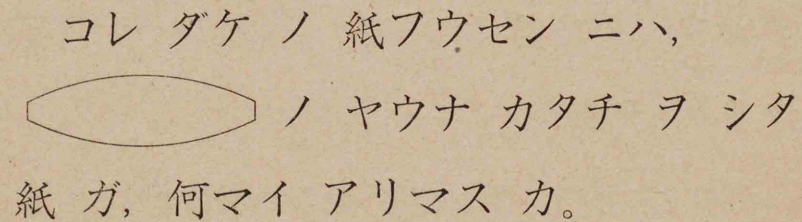 コレ ダケ ノ 紙フウセン ニハ,
ノ ヤウナ カタチ ヲ シタ
紙 ガ, 何マイ アリマス カ。